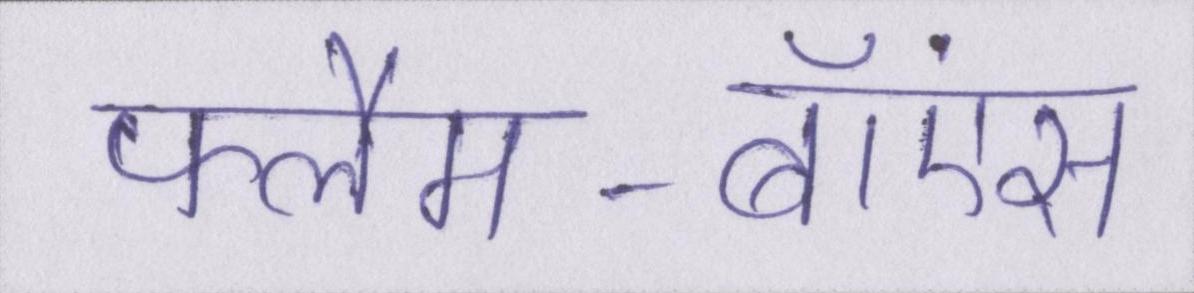 फ्लैम-बॉएंस